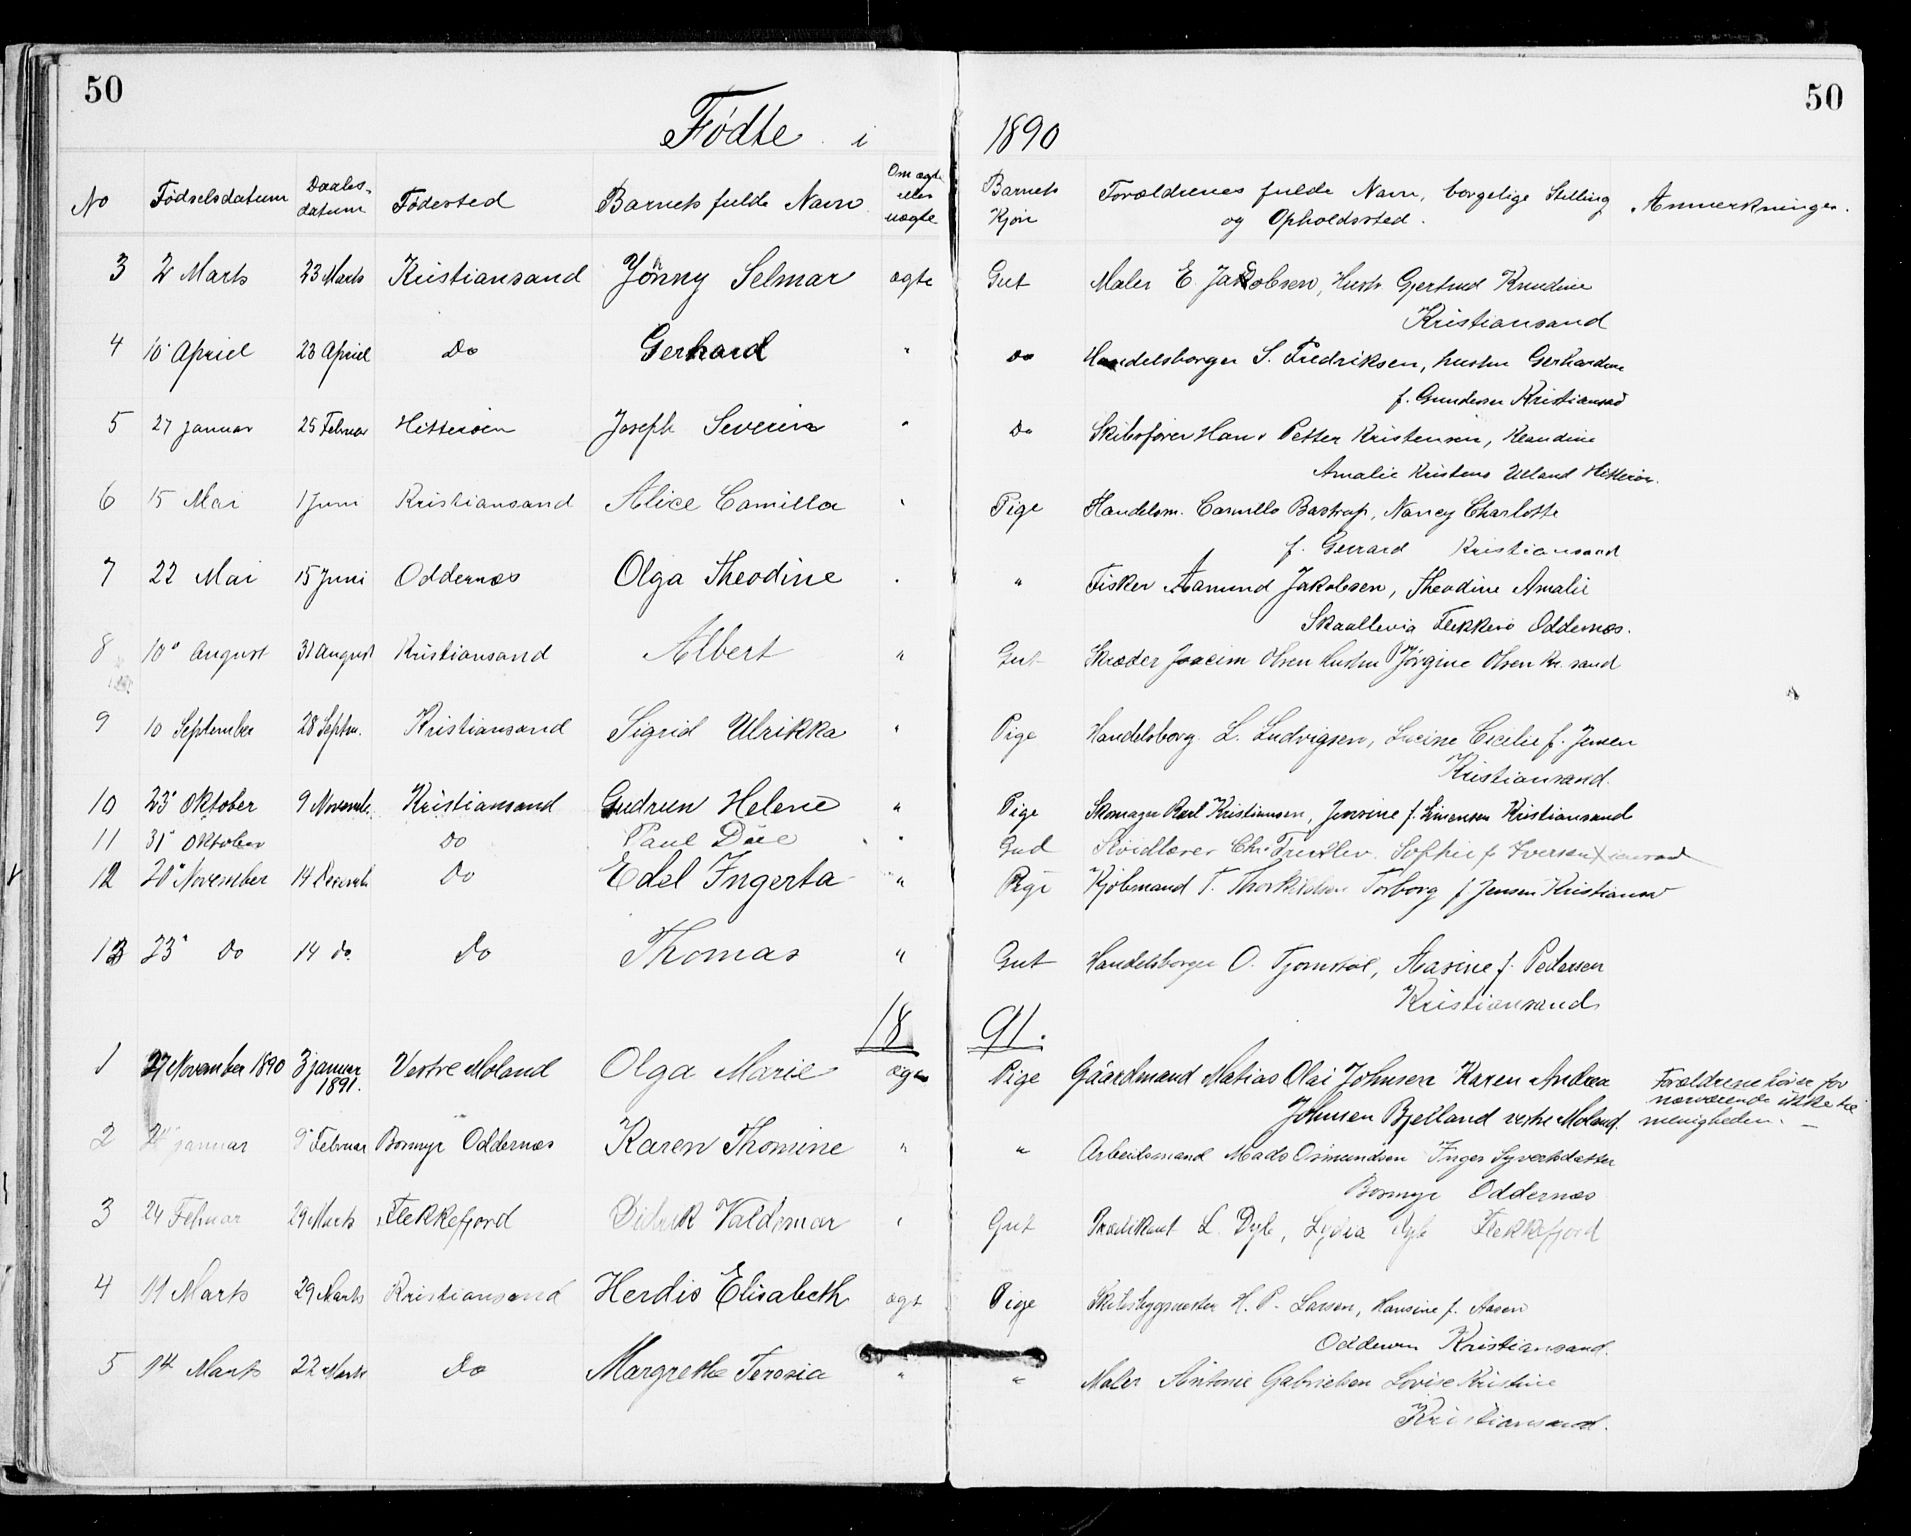 50
50
Fødte i 1890
No Fødselsdatum Daabsdatum Fødested Barnets fulde Navn Om ægte eller uægte Barnets Kjøn Forældrenes fulde Navn, borgelige Stilling og Opholdssted. Anmerkninger.
3 2 Marts 23 Marts Kristiansand Jonny Selmar ægte Gut Maler E. Jakobsen, Hustr. Gjertrud Knudine
Kristiansand
4 10 Apriel 23 Apriel Do Gerhard " Do Handelsborger S. Fredriksen, hustru Gerhardine
f. Gundersen Kristiansand
5 27 Januar 25 Februar Hitterøen Joseph Severin " Do Skibsfører Hans Petter Kristensen, Klaudine
Amalie Kristens Ueland Hitterøe.
6 15 Mai 1 Juni Kristiansand Alice Camilla " Pige Handelsm. Camillo Bastrup, Nancy Charlotte
f. Gerrard Kristiansand
7 22 Mai 15 Juni Oddernæs Olga Theodine " " Fisker Aamund Jakobsen, Theodine Amalie
Skaallevia Flekkerø Oddernæs.
8 10 August 31 August Kristiansand Albert " Gut Skræder Joacim Olsen Hustru Jørgine Olsen Kr. sand
9 10 September 28 Septbr. Kristiansand Sigrid Ulrikka " Pige Handelsborg. L. Ludvigsen, Lucine Cicilie f. Jensen
Kristiansand.
10 23 Oktober 9 Novemb. Kristiansand Gudrun Helene " Pige Skomager Karl Kristiansen, Jensine f. Simonsen Kristiansand
11 31 Oktober Do Paul Due " Gud Chr. Sophie f. Iversen
12 20 November 14 Decemb. Do Edel Ingerta " Pige Kjøbmand T. Thorkildsen Torborg f. Jensen Kristiansand
13 23 Do 14 do. Do Thomas " Gut Handelsborger O. Aasine f. Pedersen
Kristiansand
1891.
1 27 November 1890 3 januar 1891. Vestre Moland Olga Marie ægte Pige Gaardmand Matias Olai Johnsen Karen Andrea
Johnsen Bjelland vestre Moland. Forældrene hører for nærværende ikke til menigheden.
2 januar 9 Februar Bosmyr Oddernæs Karen Thomine " " Arbeidsmand Mads Osmundsen Inger Syvertsdatter
Bosmyr Oddernæs
3 24 Februar 29 Marts Flekkefjord Didrik Valdemar " Gut Prædikant L. Dyb, Lydia Dyb Flekkefjord
4 11 Marts 29 Marts Kristiansand Herdis Elisabeth ægt Pige Skibsbygmester H. P. Larsen, Hansine f. Aasen
Odderøen Kristiansand.
5 14 Marts 22 Marts Do Margrethe Teresia " " Maler Antonie Gabrielsen Lovise Kristine
Kristiansand.